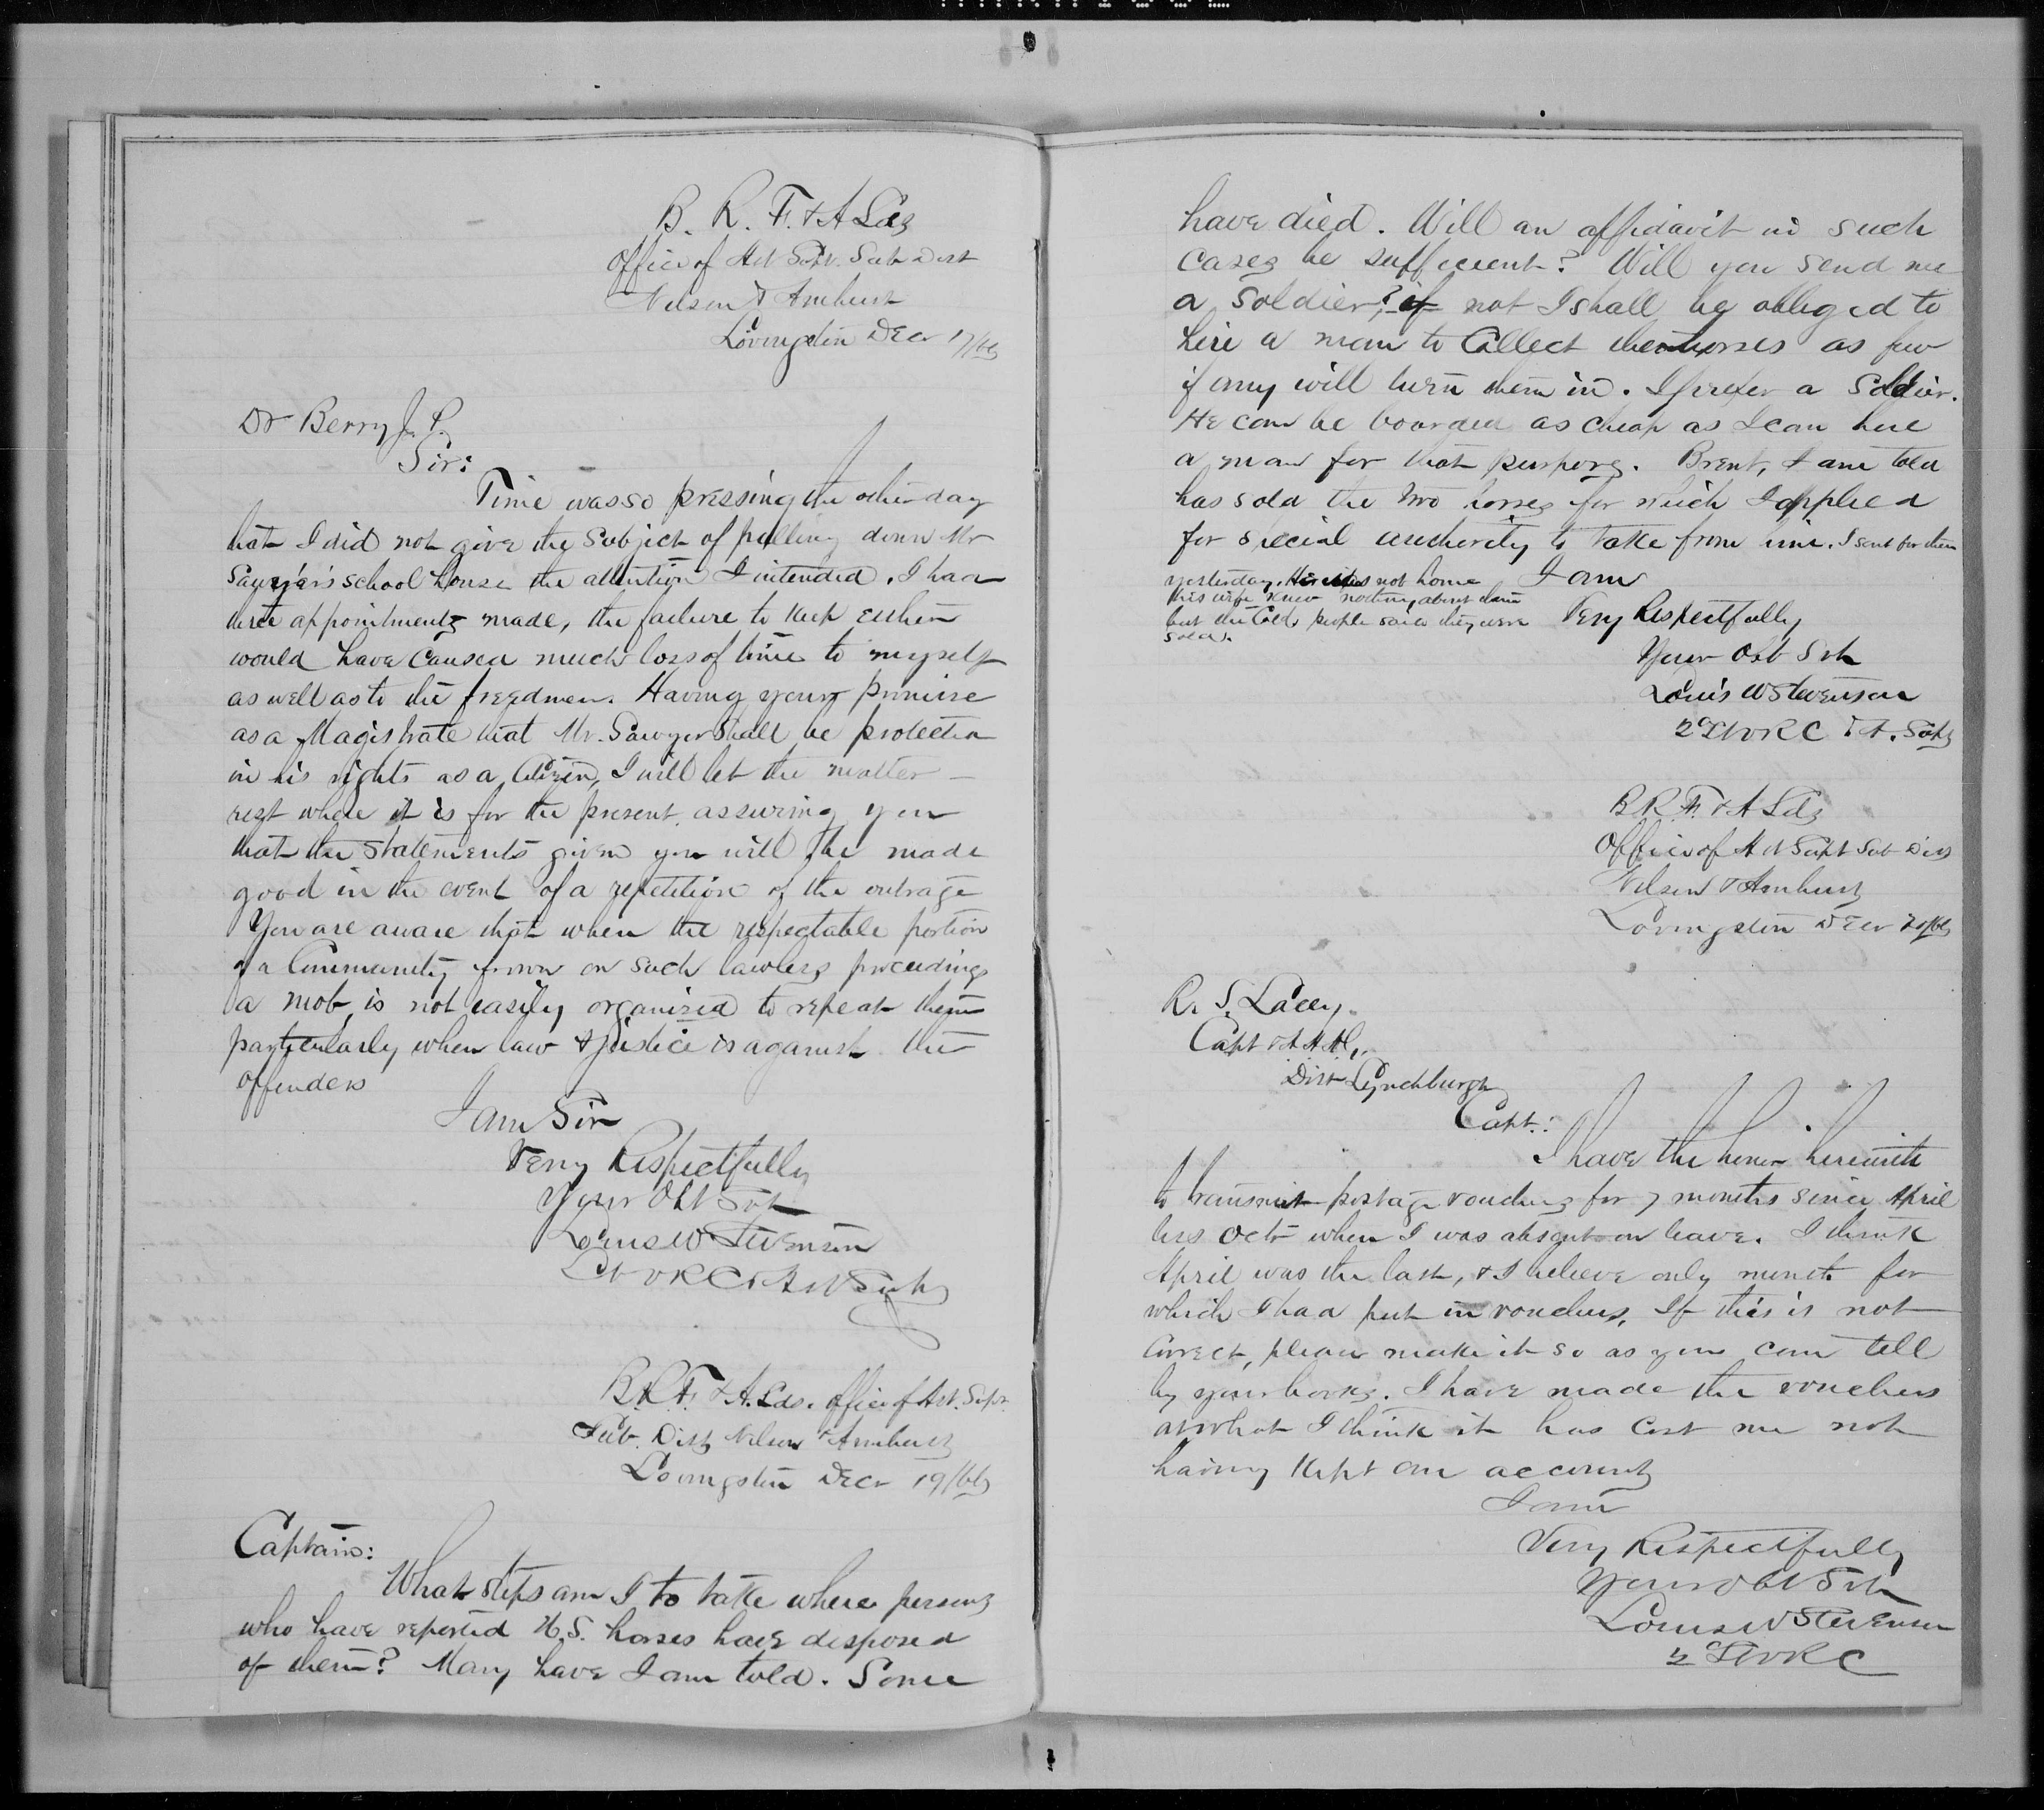 B. R. F. & A Lds
Office of Ast Supt. Sub Dist
Nelson & Amherst
Lovingston Decr 17/66
Dr Berry J. P.
Sir:
Time was so pressing the other day
that I did not give the Subject of pulling down Mr
Sawyer's school house the attention I intended. I had
three appointments made, the failure to keep either
would have caused much loss of time to myself
as well as to the freedmen. Having your promise
as a Magistrate that Mr. Sawyer shall be protected
in his rights as a Citizen, I will let the matter
rest where it is for the present, assuring you
that the statements given you will be made
good in the event of a repetition of the outrage
You are aware that when the respectable portion
of a Community frown on such lawless proceedings
a mob is not easily organized to repeat them
particularly when law & justice is against the
offenders
I am Sir
Very Respectfully
Your Obt Svt
Louis W Stevenson
Lt V R C & Ast Supt
B.R.F. & A. Lds. Office of Ast. Supt.
Sub. Dist Nelson & Amherst
Lovingston Decr 19/66
Captain:
What steps am I to take where persons
who have reported U.S. horses have disposed
of them? Many have I am told. Some
have died. Will an affidavit in such
cases be sufficient? Will you send me
a soldier? if not I shall be obliged to
hire a man to Collect the horses as few
if any will turn them in. I prefer a Soldier.
He can be boarded as cheap as I can hire
a man for that purpose. Brent, I am told
has sold the two horses for which I applied
for special authority to take from him. I sent for them
yesterday. He was not home
His wife knew nothing about them
but the Cold. people said they were
sold.
I am
Very Respectfully
Your Obt Svt
Louis W Stevenson
2d Lt V R C & A. Supt
B R. F. & A Lds
Office of Ast Supt Sub Dist
Nelson & Amherst
Lovingston Decr 20/66
R. S. Lacey.
Capt & A A A G.
Dist Lynchburgh
Capt.:
I have the honor herewith
to transmit postage vouchers for 7 months since April
less Octr when I was absent on leave. I think
April was the last, & I believe only month for
which I had put in vouchers, If this is not
Correct, please make it so as you can tell
by your books. I have made the vouchers
at what I think it has cost me not
having kept an account
I am
Very Respectfully
Your Obt Svt
Louis W Stevenson
2d Lt V R C